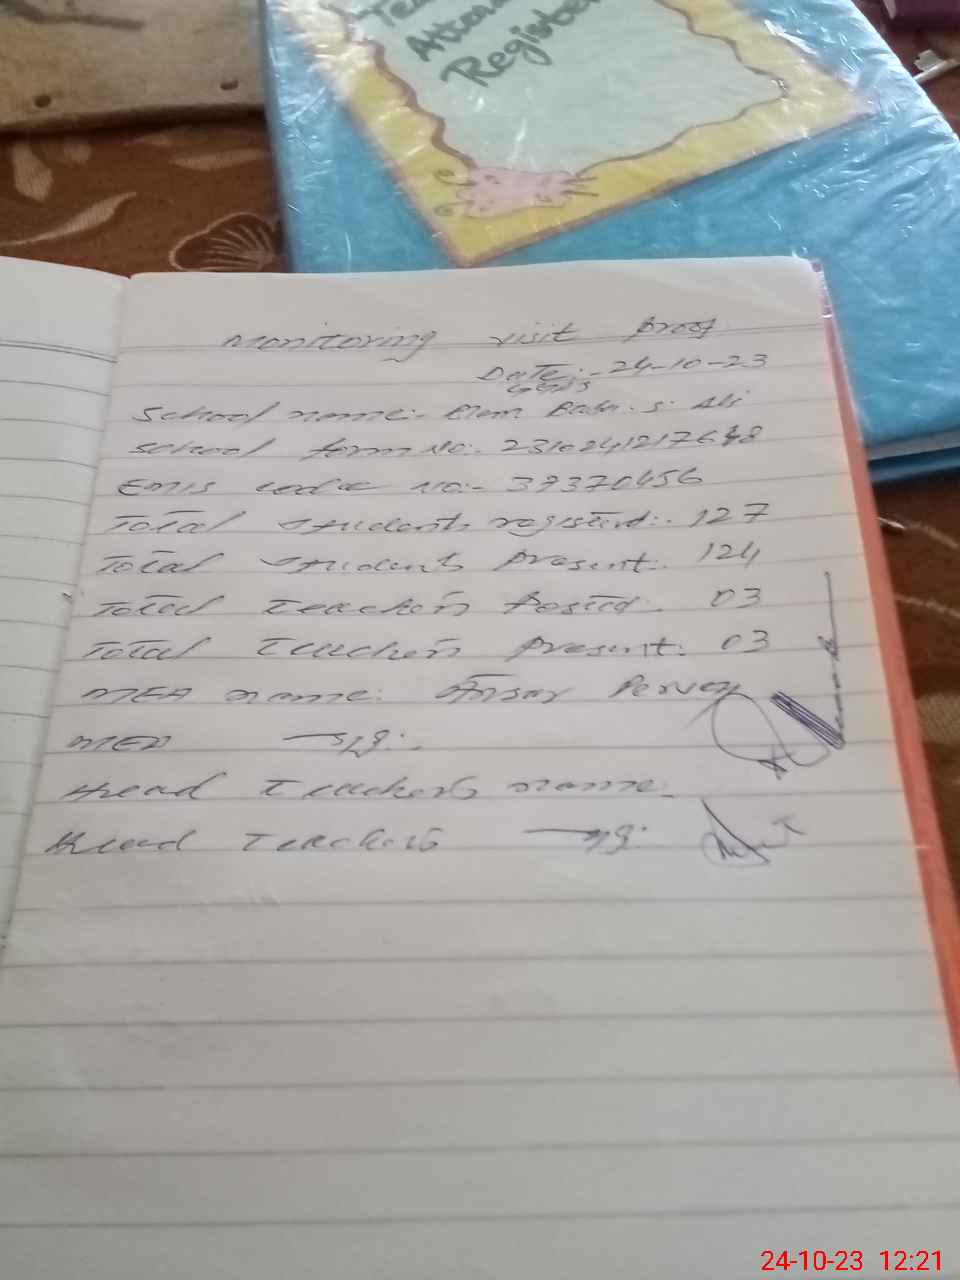 Attend
Register
Monitoring visit proof
Date:- 24-10-23
School name:- Elem Ali
School form No:- 23102412176
EMIS code No:- 37370456
Total students registerd:. 127
Total students present:. 124
Total Teachers Posted. 03
Total Teachers present:. 03
MEA name: Ansar Pervez
MEA sig:.
Head Teachers name
Head Teachers sig:
24-10-23 12:21